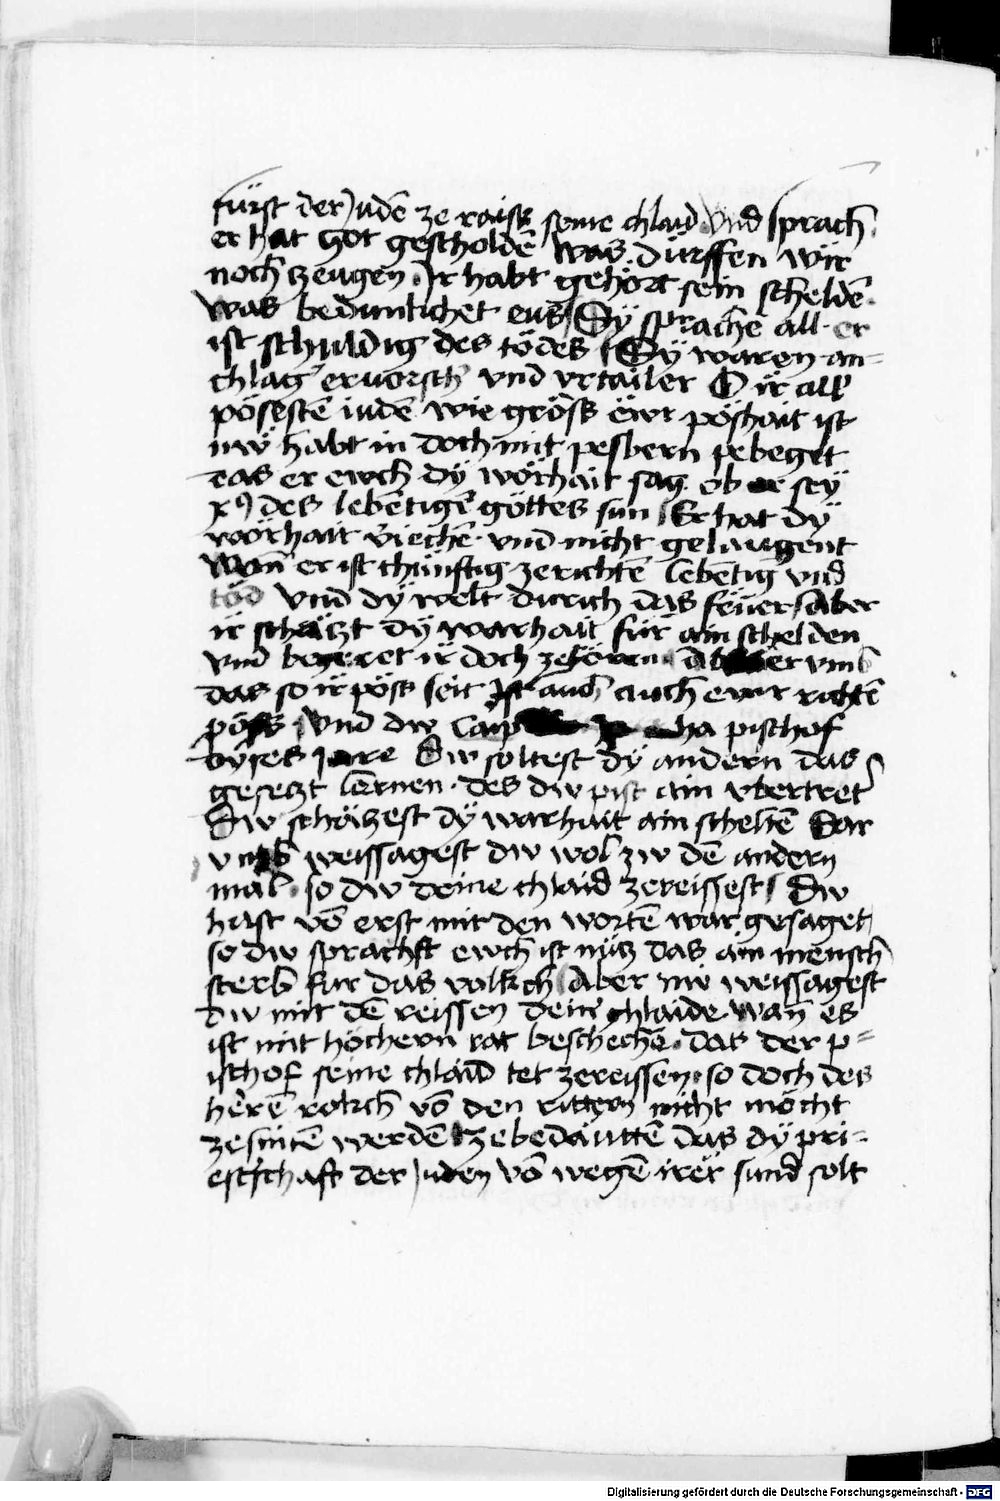 fürst der Judē ze raisß seine chlaid vnd sprach
er hat got gescholdē was dürffen wir
noch tzeugen Ir habt gehört sein scheldē
was bedunkchet eus Sÿ sprachē all er
ist schuldig des tödes Sÿ waren an=
chlag ervorsch vnd vrtailer O ir all
pösestē iudē wie grösß ewr pöshait ist
nw habt in doch mit pesbern pebegt
das er ewch dÿ wörhait sag ob er seÿ
xꝰ des lebētigē göttes sun Er hat dÿ
wörhait v̈iechē vnd nicht gelaugent
wan̄ er ist chünftig ze richtē lebētig vnd
töd vnd dÿ welt durich das feuer Aber
ir schätzt dÿ warhait für ain schelden
vnd begeret ir doch ze hören vmb
das so ir pösß seit Ist auch ewr richtē
pösß vnd dw pischof
dyses Jare Dw soltest dÿ andern das
gesetzt lernen des dw pist ain vbertret
Dw schätzest dÿ warhait ain scheltē Dar
vmb weissagest dw wol zw dē andern
mal so dw deine chlaid zereissest Dw
hast vō erst mit den wortē war gesaget
so dw sprachst ewch ist nütz das ain mensch
sterb fur das volkch Aber nw weissagest
dw mit dē reissen dein chlaide wan̄ es
ist mit höchern rat beschechē das der p=
ischof seine chlaid tet zereissen so doch des
herē rokch vō den rittern nicht möcht
zesnitē werdē ze bedäuttē das dÿ pri=
estschaft der Juden vō wegē irer sund solt
Digitalisierung gefördert durch die Deutsche Forschungsgemeinschaft - DFG